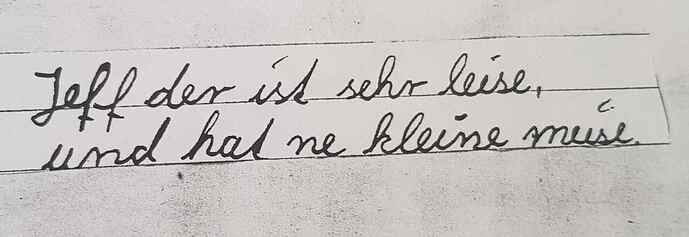 Jeff der ist sehr leise,
und hat ne kleine meise.